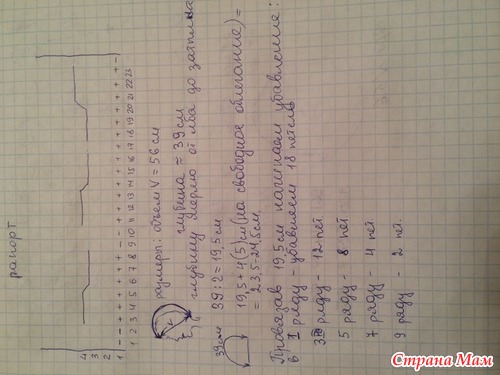 рапорт
4
3
2
1 - - + + + + + + - - + + + + + + + + + + + + -
1 2 3 4 5 6 7 8 9 10 11 12 13 14 15 16 17 18 19 20 21 22 23
размеры: объем V = 56 см
глубина = 39 см
глубину меряю от лба до затылка
39 см
39 : 2 = 19,5 см
19,5 + 4(5) см (на свободное облегание) =
= 23,5 - 24,5 см
Провязав 19,5 см начинаем убавление:
в 1 ряду - убавляем 18 петель
3 ряду - 12 пет
5 ряду - 8 пет
7 ряду - 4 пет.
9 ряду - 2 пет.
Страна Мам